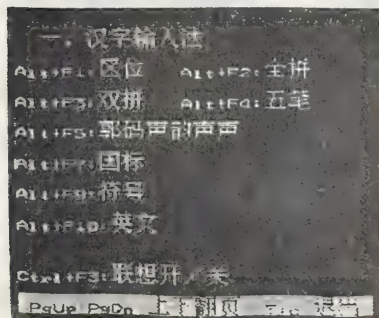 一、汉字输入法
Alt+F1:区位 Alt+F2:全拼
Alt+F3:双拼 Alt+F4:五笔
Alt+F5:郭码声韵声声
Alt+F7:国标
Alt+F9:符号
Alt+F10:英文
Ctrl+F3:联想开／关
PgUp PgDn 上下翻页 退出